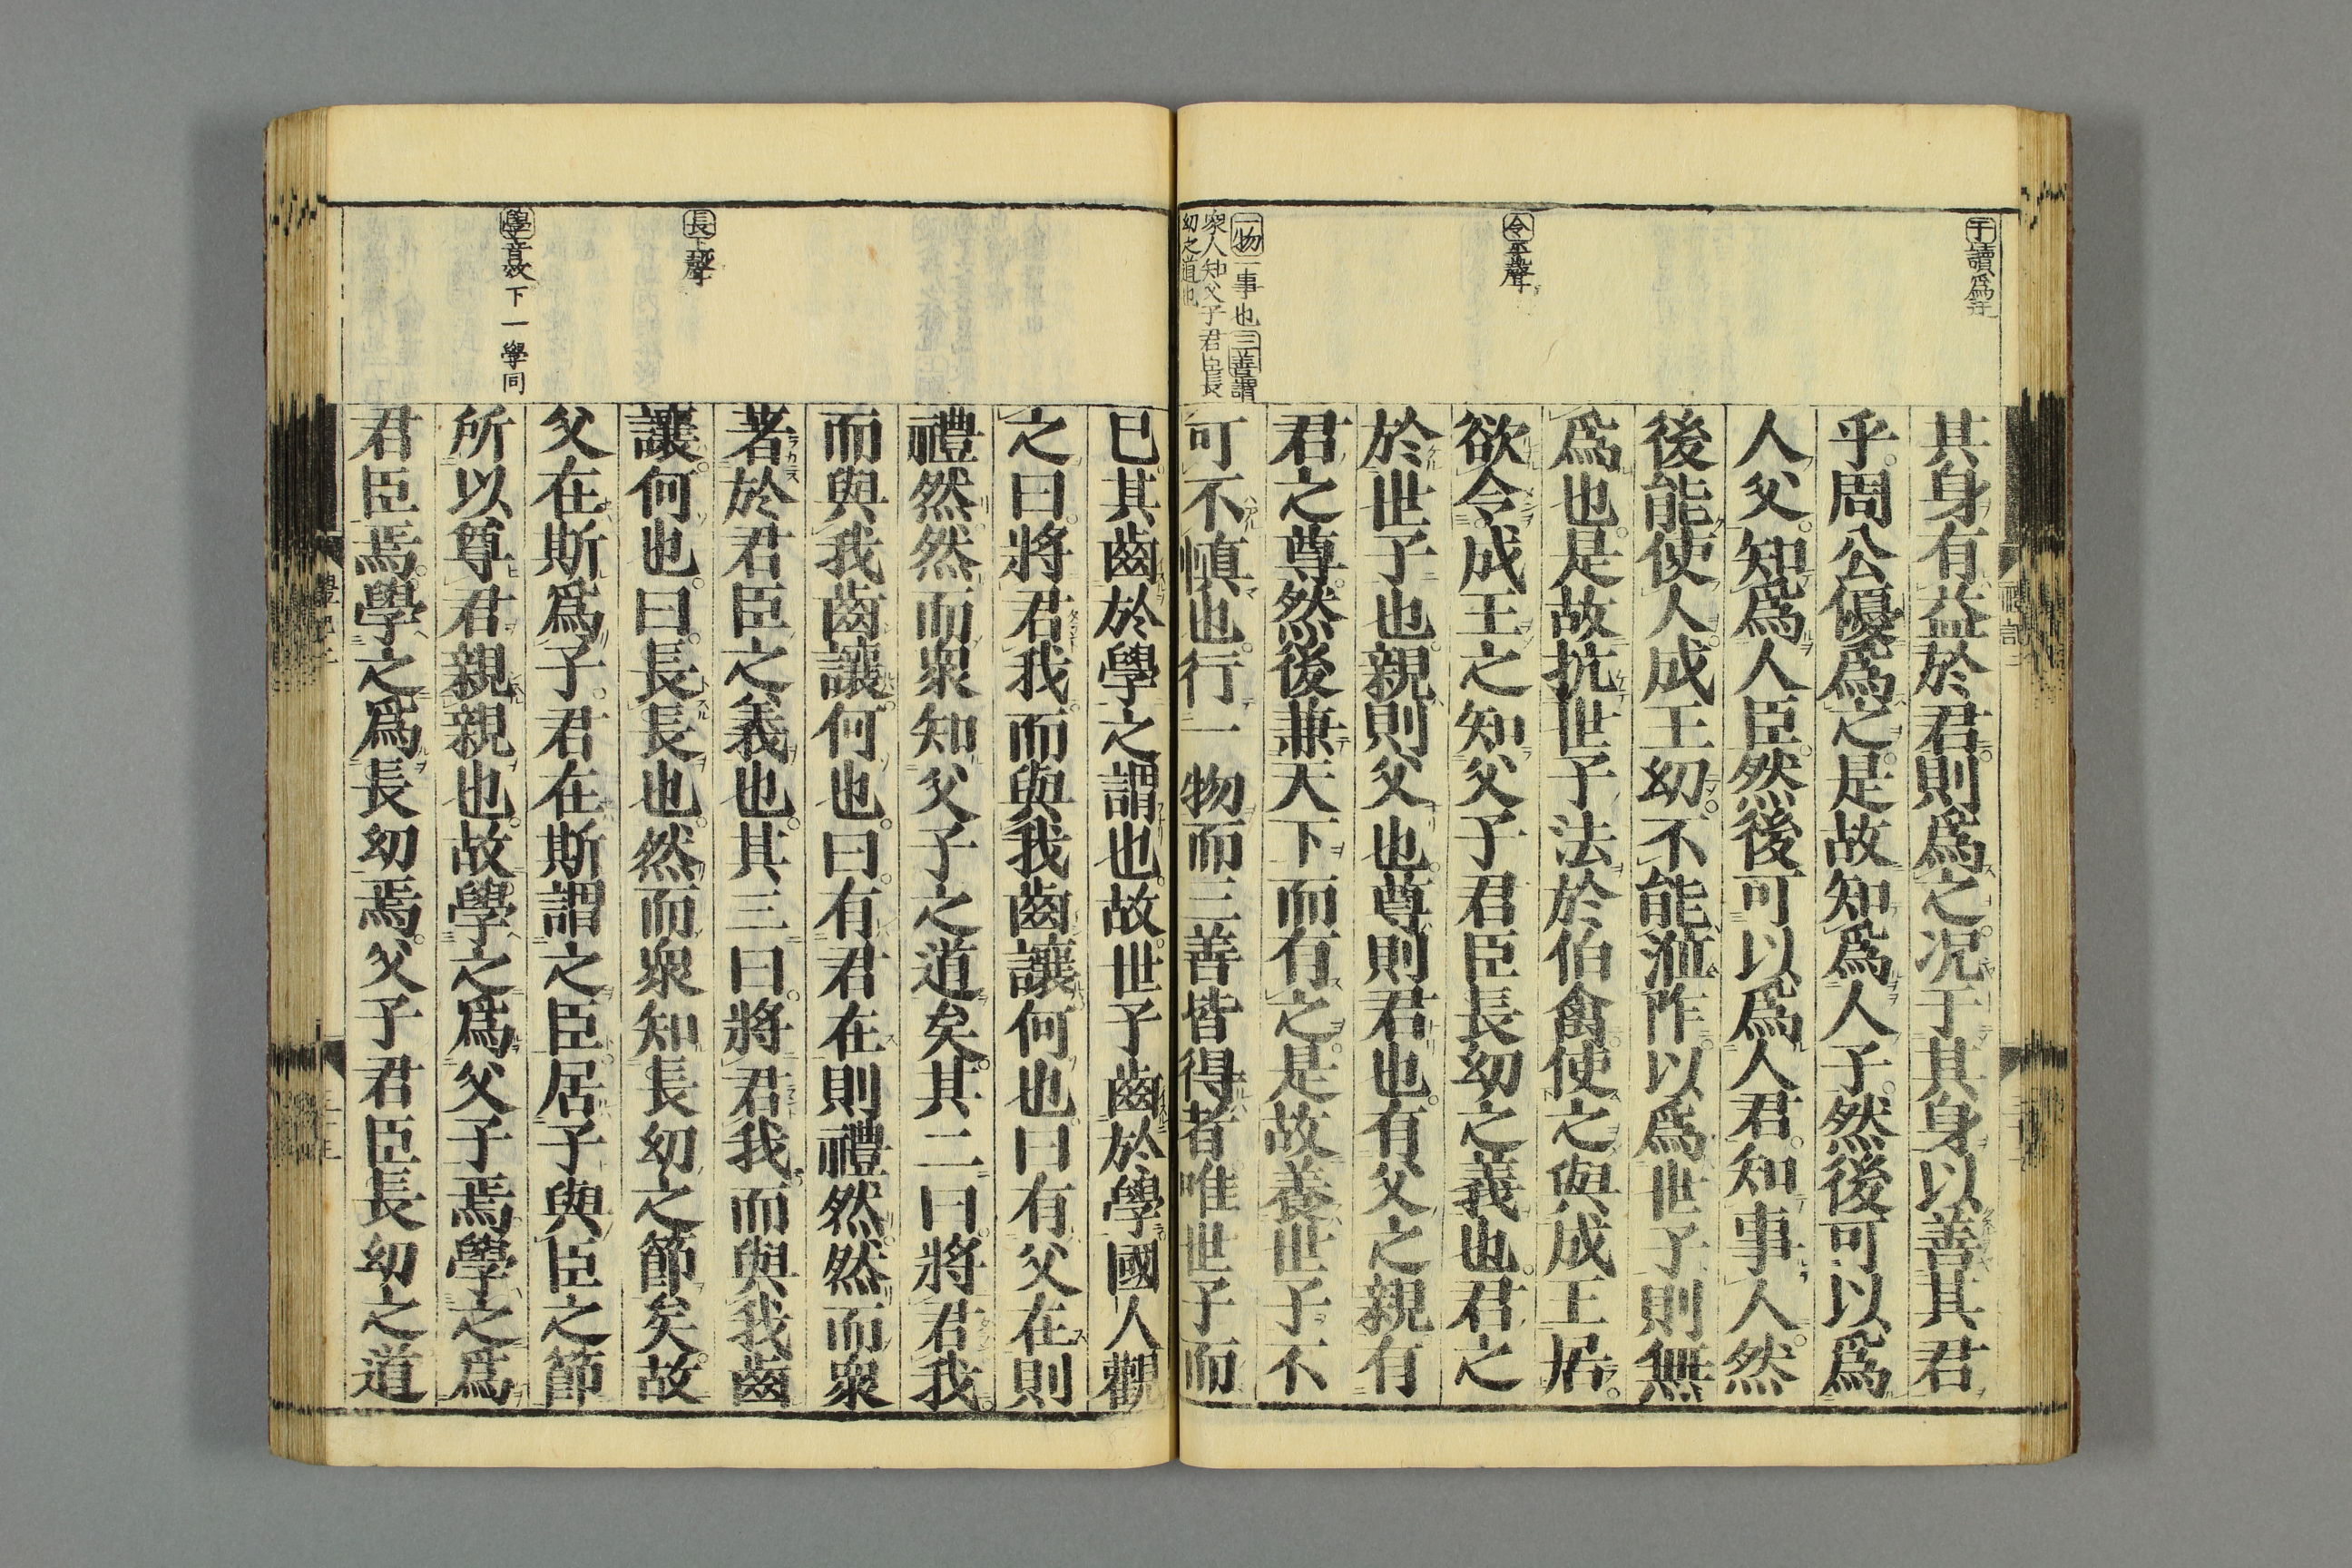 于讀爲迂
令平聲
一物一事也三善謂
衆人知父子君臣長
幼之道也
其身有益於君則爲之况于其身以善其君
乎周公優爲之是故知爲人子然後可以爲
人父知爲人臣然後可以爲人君知事人然
後能使人成王幼不能涖阼以爲世子則無
爲也是故抗世子法於伯禽使之與成王居
欲令成王之知父子君臣長幼之義也君之
於世子也親則父也尊則君也有父之親有
君之尊然後兼天下而有之是故養世子不
可不慎也行一物而三善皆得者唯世子而
長上聲
學音效下一學同
已其齒於學之謂也故世子齒於學國人觀
之曰將君我而與我齒讓何也曰有父在則
禮然然而衆知父子之道矣其二曰將君我
而與我齒讓何也曰有君在則禮然然而衆
著於君臣之義也其三曰將君我而與我齒
讓何也曰長長也然而衆知長幼之節矣故
父在斯爲子君在斯謂之臣居子與臣之節
所以尊君親親也故學之爲父子焉學之爲
君臣焉學之爲長幼焉父子君臣長幼之道